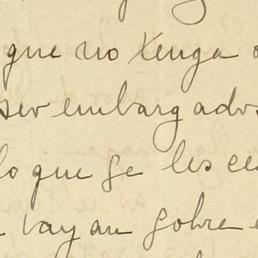 que no tenga
ser embargados
lo que se les
vayan sobre